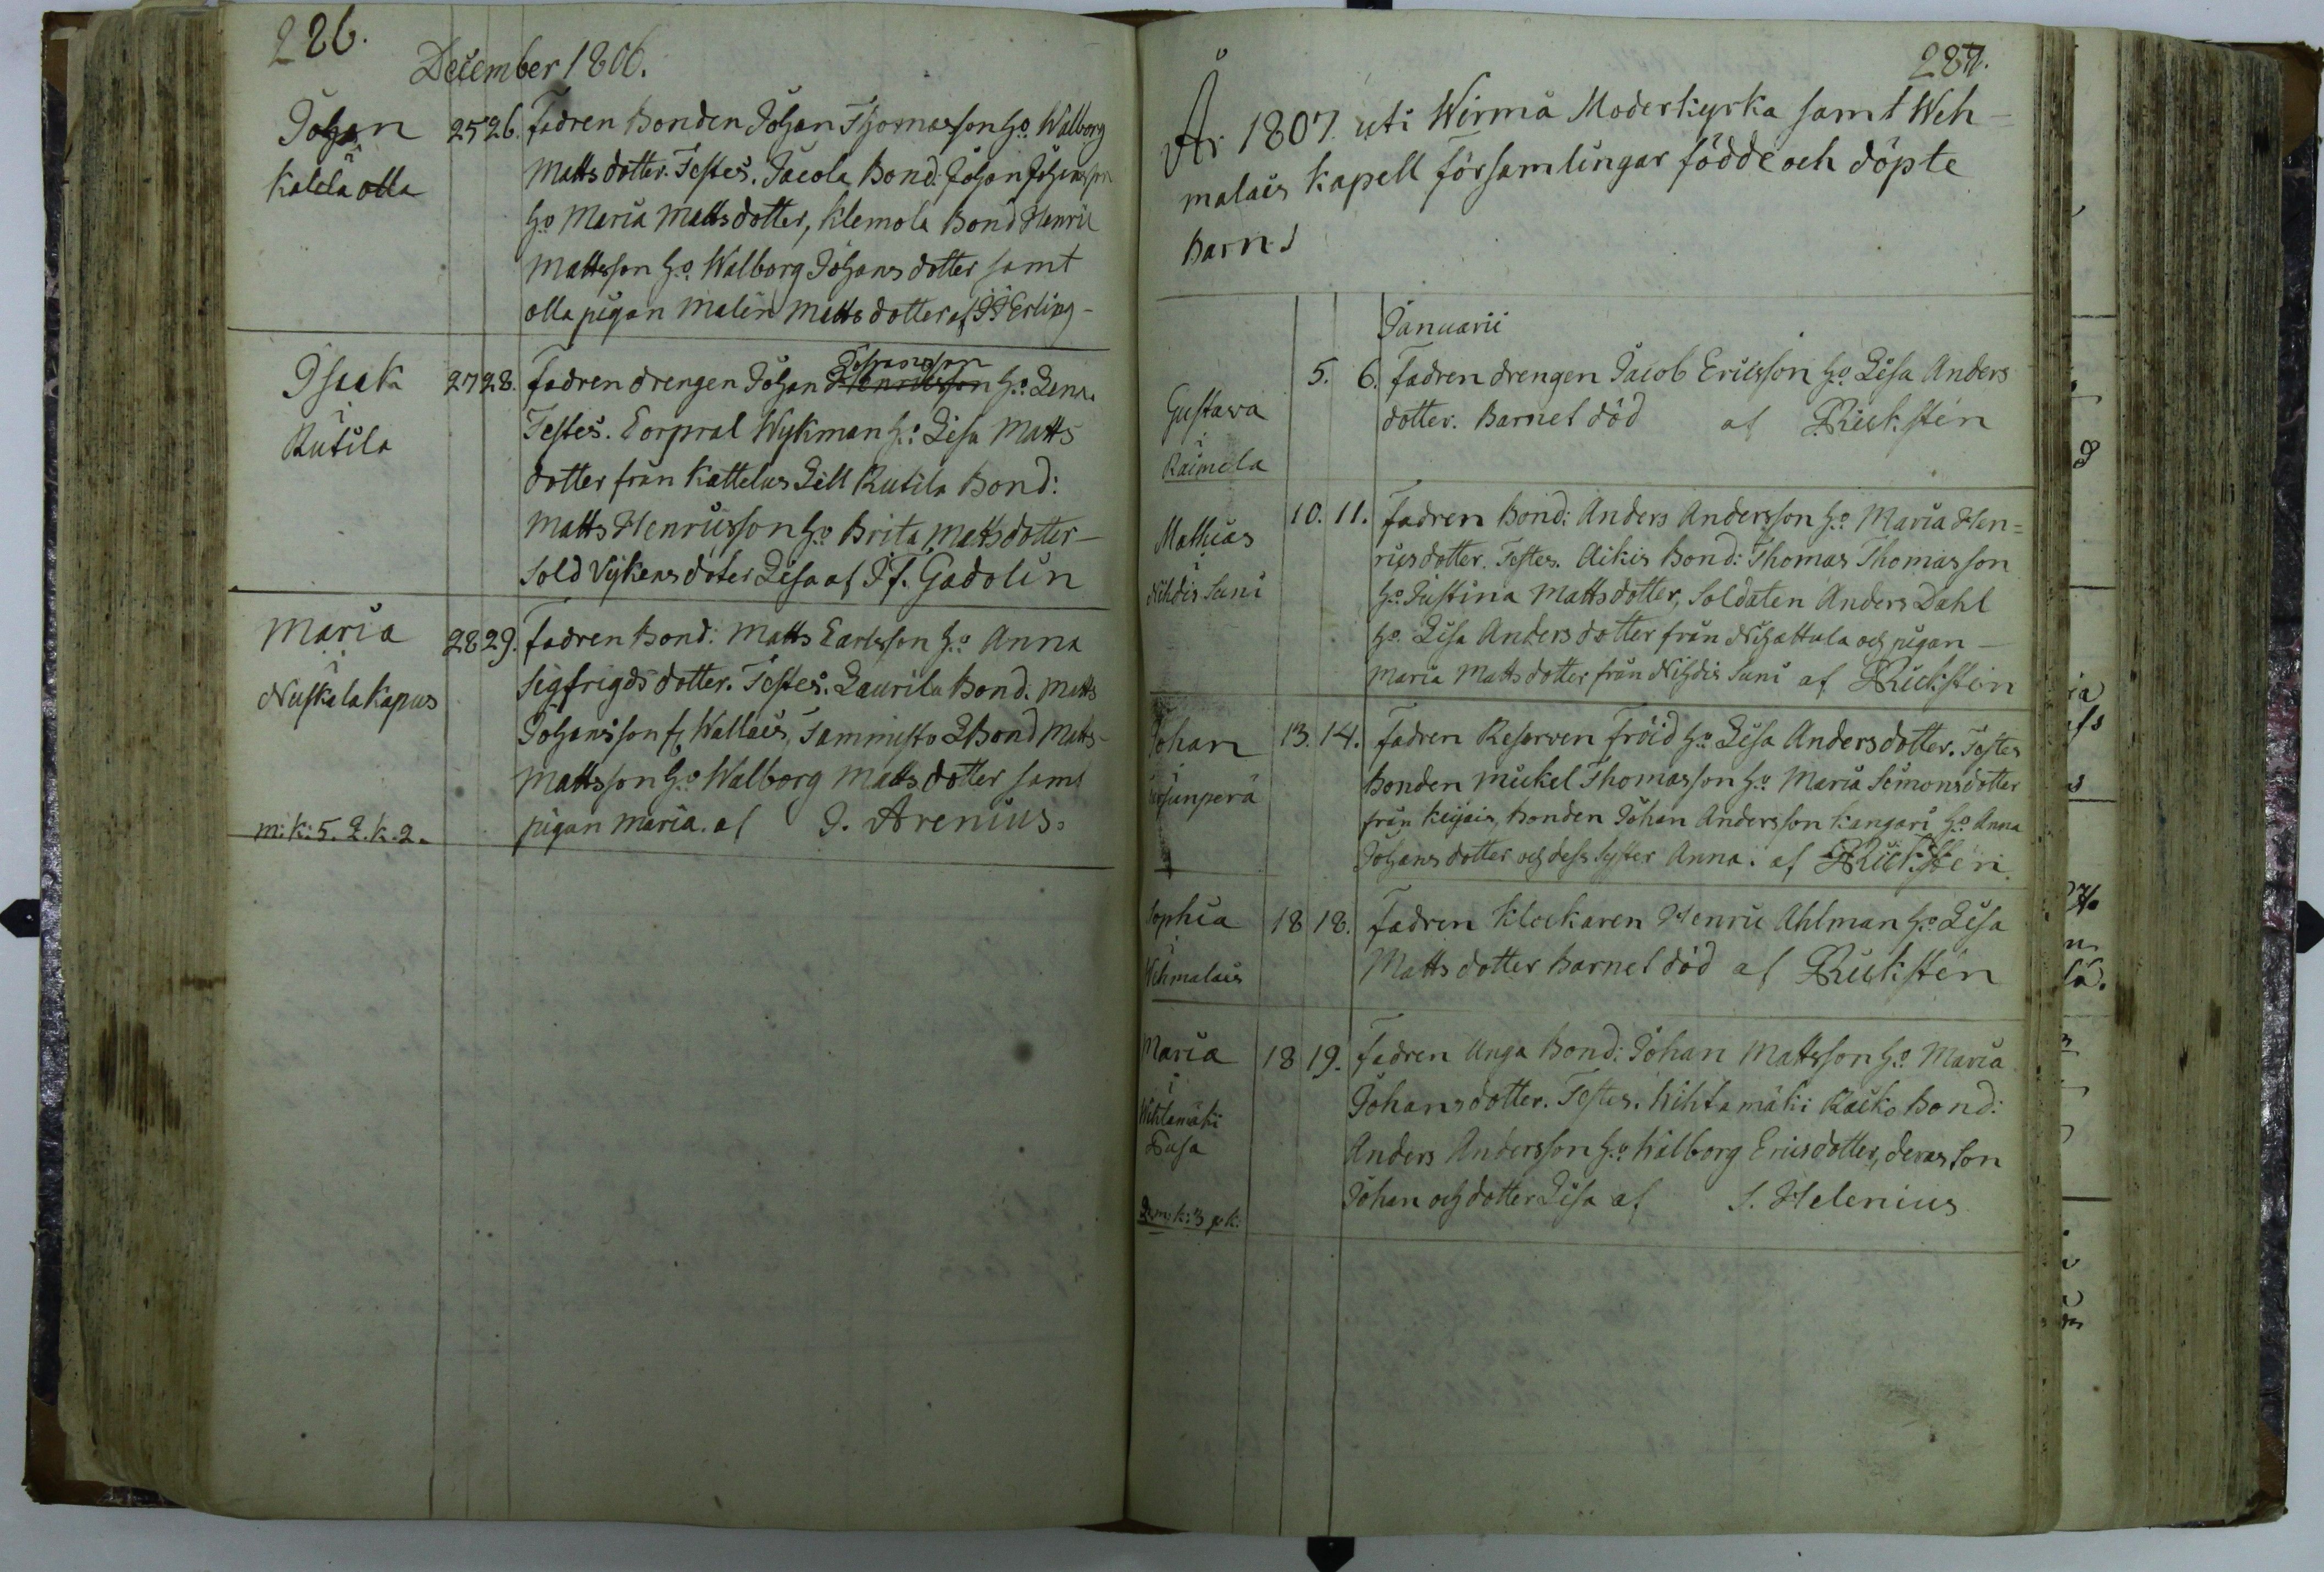 226.
December 1806.
Johan
i
Kalela olla
25 26. Fadren Bonden Johan Thomasson h:o Walborg
Matts dotter. Testes. Jacola Bond. Johan Johansson
h:o Maria Mattsdotter, Klemola Bond Henric
Mattsson h:o Walborg Johans dotter samt
olla pigan Malin Matts dotter af Erling-
Isaak
i
Rutila
27 28. Fadren drengen Johan Henriksson Johansson h:o Lena.
Testes. Corpral Wykman h:o Lisa Matts
dotter från Kattelus Lill Rutila Bond:
Matts Henricsson h:o Brita Mattsdotter-
Sold Vykens doter Lisa af Gadolin
Maria
i
Nuskala Kapus
28 29. Fadren Bond: Matts Carlsson h:o Anna
Sigfrigds dotter. Testes. Laurila Bond. Matts
Johansson fr Wallais, Tammisto Bond Matts-
Mattsson h:o Walborg Matts dotter samt
pigan Maria. af J. Arenius.
m: k: 5. Q. k. 2.
287.
År 1807. uti Wirmå Moderkyrka samt Weh-
malais Kapell församlingar födde och döpte
Barn.
Januarii
Gustava
i
Raimela
5. 6. Fadren drengen Jacob Ericsson h:o Lisa Anders
dotter. Barnet död af Rickstén
Mathias
i
Nihdis Suni
10. 11. Fadren Bond: Anders Andersson h:o Maria Hen=
ricsdotter. Testes. Aikis Bond: Thomas Thomasson
h:o Justina Mattsdotter, Soldaten Anders Dahl
h:o Lisa Andersdotter från Nihattula och pigan-
Maria Mattsdotter från Nihdis Suni af Rickstén
Johan
i
13. 14. Fadren Reserven Fröid h:o Lisa Andersdotter. Testes
Bonden Mickel Thomasson h:o Maria Simonsdotter
från Keijais, Bonden Johan Andersson Kangari h:o Anna
Johans dotter och dess Syster Anna. af Rickstén.
Sophia
i
Wehmalais
18 18. Fadren Klockaren Henric Ahlman h:o Lisa
Matts dotter Barnet död af Rickstén
Maria
i
Wihtamäki
Pusa
18 19. Fadren Unga Bond: Johan Mattsson h:o Maria
Johansdotter. Testes. Wihtamäki Kaiko Bond:
Anders Andersson h:o Walborg Ericsdotter, deras Son
Johan och dotter Lisa af S. Helenius
2. m: k: 3 q. k.